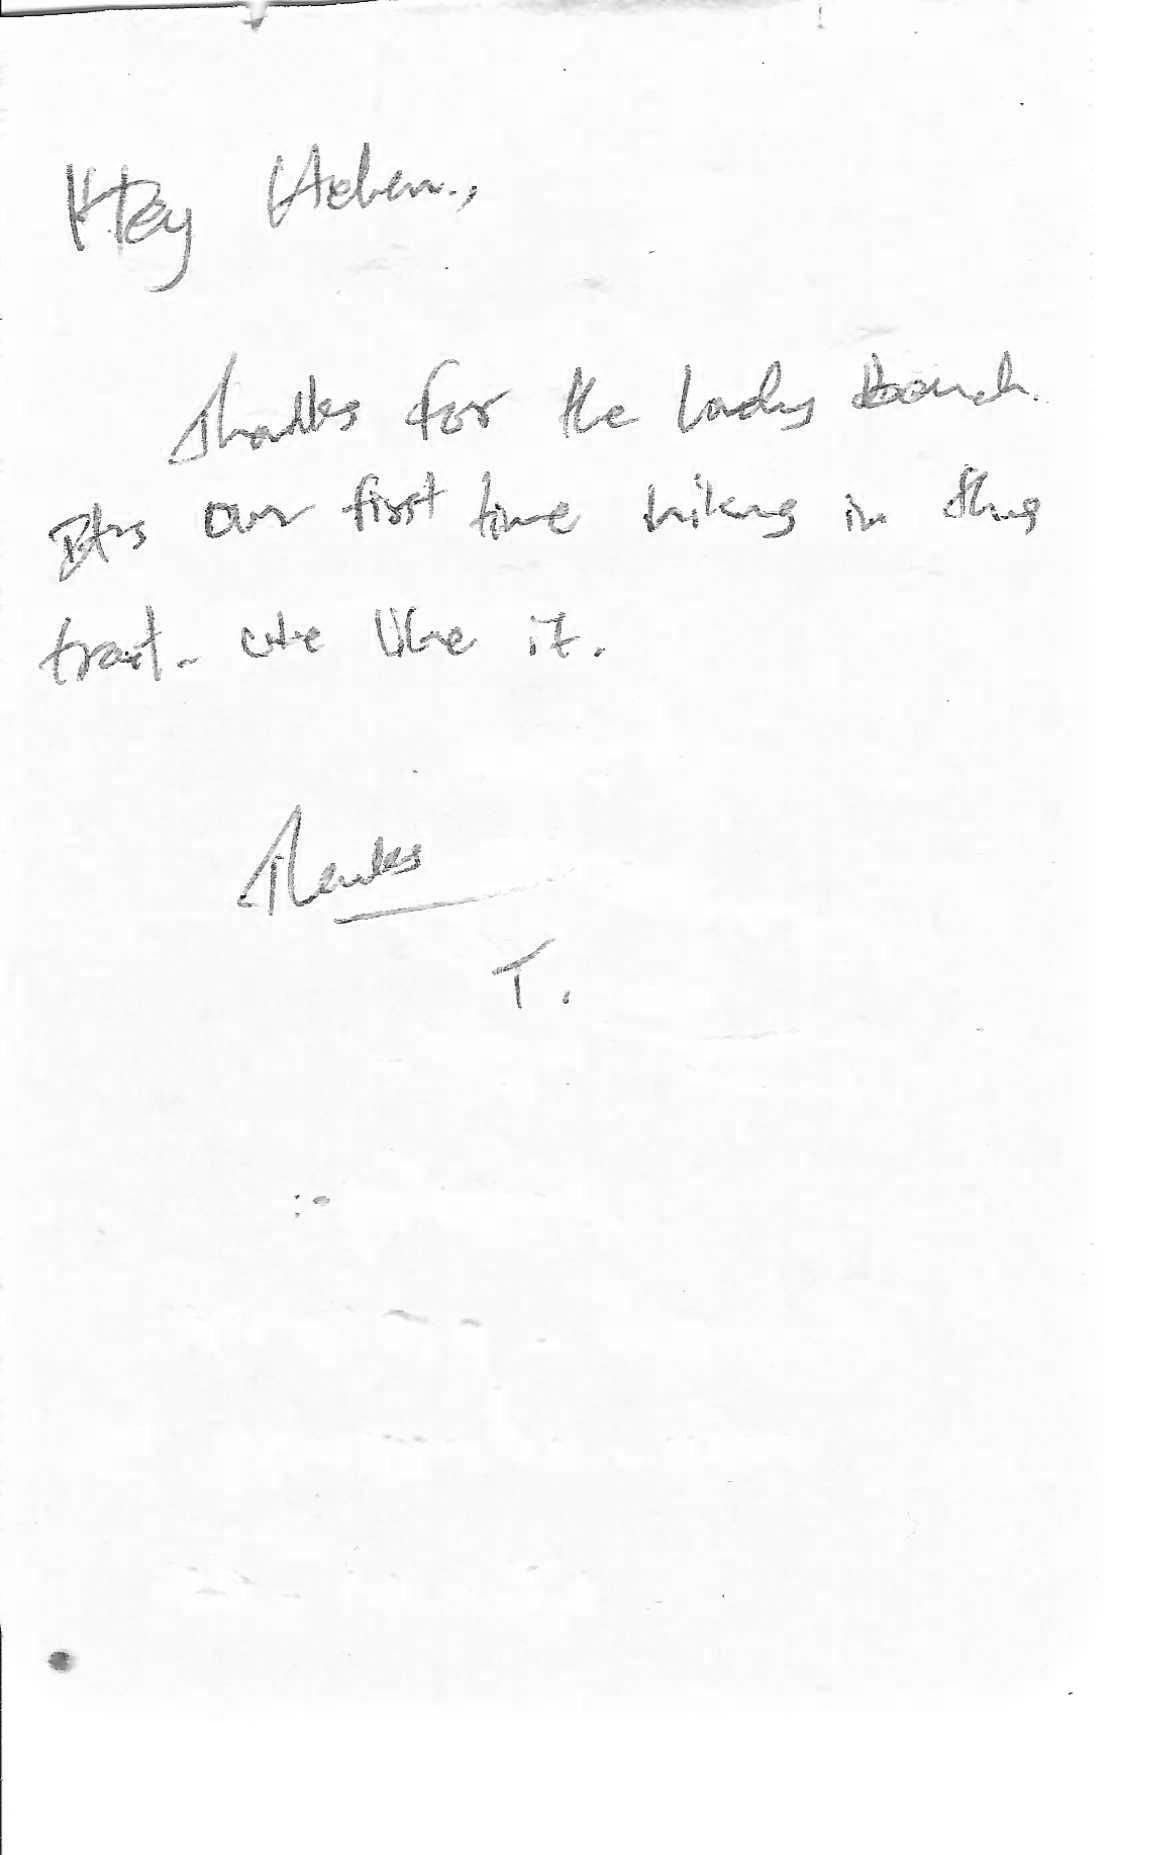 Hey Helen,
Thanks for the lovely bench.
It's our first time hiking in this
trail. We like it.
Thanks
T.